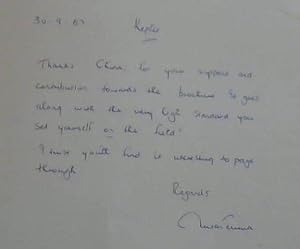 30-9-87
Kepler
Thanks for your support and
contribution towards the brochure. It goes
along with the very high standard you
set yourself on the field.
I trust you'll find it interesting to page
through
Regards